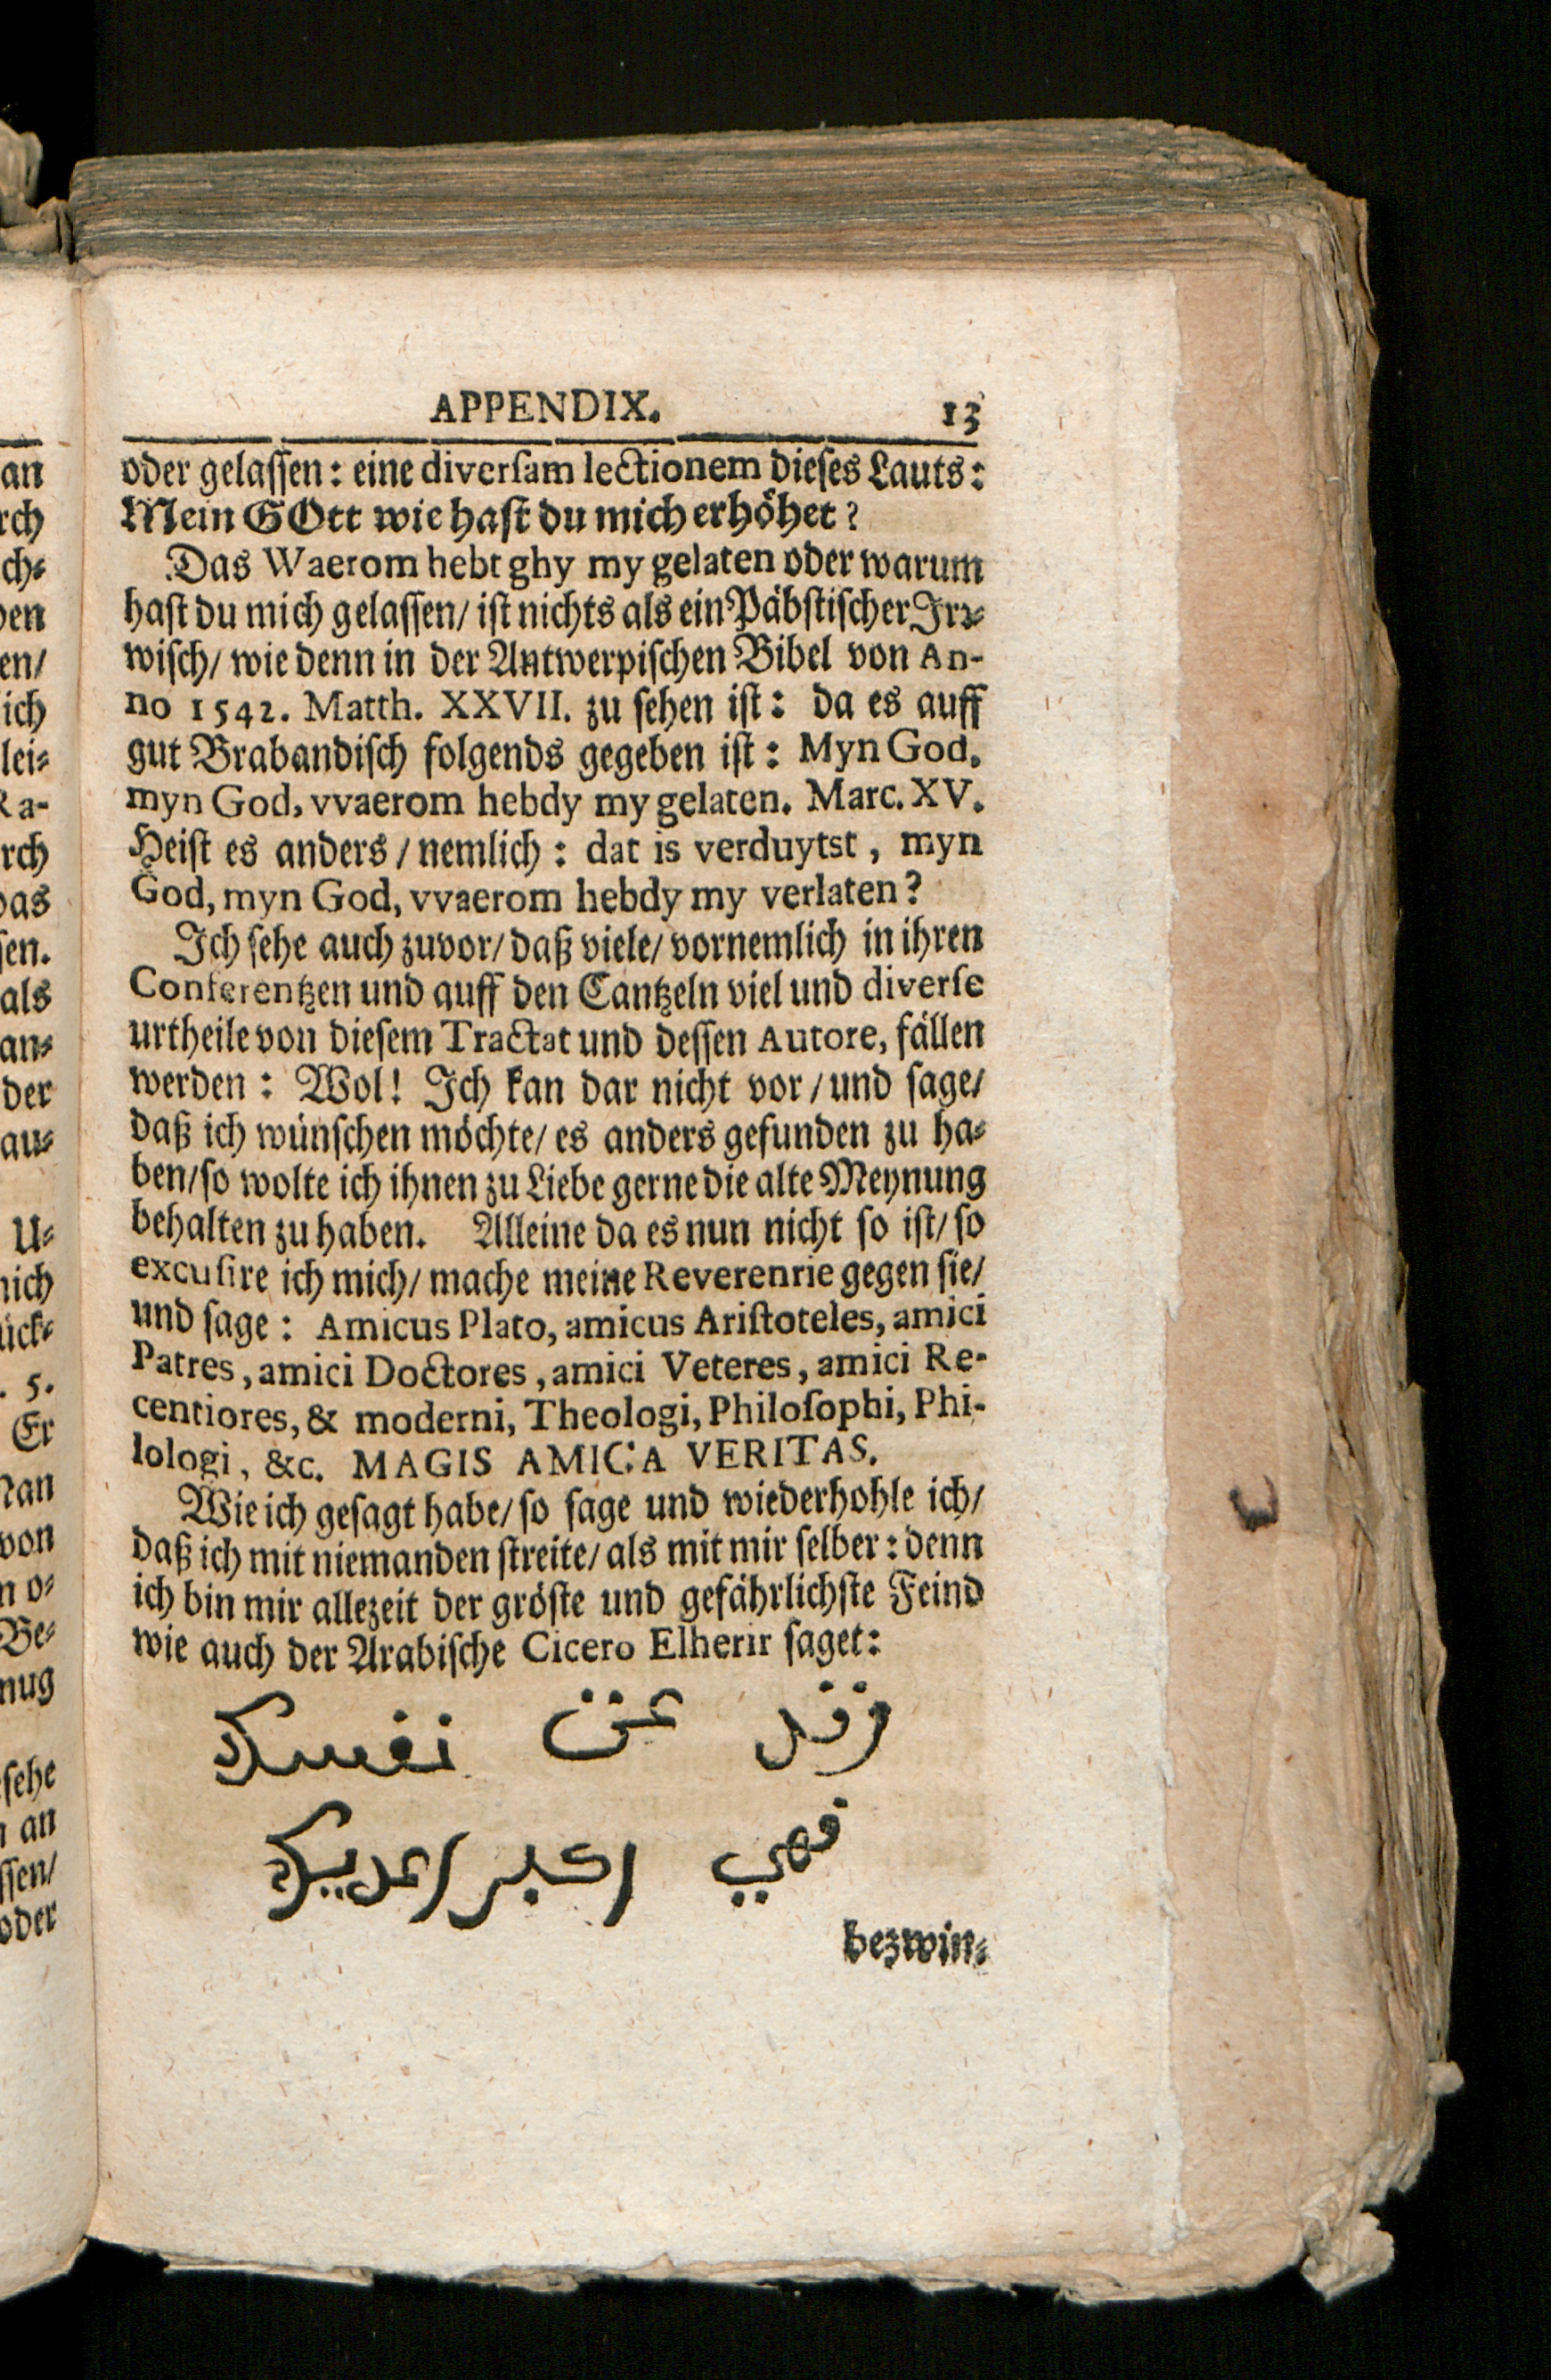 APPENDIX. 13
oder gelassen: eine diversam lectionem dieses Lauts:
Mein GOtt wie hast du mich erhöhet?
Das Waerom hebt ghy my gelaten oder warum
hast du mich gelassen/ ist nichts als ein Päbstischer Irr-
wisch/ wie denn in der Antwerpischen Bibel von An-
no 1542. Matth. XXVII. zu sehen ist: da es auff
gut Brabandisch folgends gegeben ist: Myn God,
myn God, vvaerom hebdy my gelaten. Marc. XV.
Heist es anders/ nemlich: dat is verduytst, myn
God, myn God, vvaerom hebdy my verlaten?
Ich sehe auch zuvor/ daß viele/ vornemlich in ihren
Conferentzen und auff den Cantzeln viel und diverse
urtheile von diesem Tractat und dessen Autore, fällen
werden: Wol! Ich kan dar nicht vor/ und sage/
daß ich wünschen möchte/ es anders gefunden zu ha-
ben/ so wolte ich ihnen zu Liebe gerne die alte Meynung
behalten zu haben. Alleine da es nun nicht so ist/ so
excusire ich mich/ mache meine Reverentie gegen sie/
und sage: Amicus Plato, amicus Aristoteles, amici
Patres, amici Doctores, amici Veteres, amici Re-
centiores, & moderni, Theologi, Philosophi, Phi-
lologi, &c. MAGIS AMICA VERITAS.
Wie ich gesagt habe/ so sage und wiederhohle ich/
daß ich mit niemanden streite/ als mit mir selber: denn
ich bin mir allezeit der gröste und gefährlichste Feind
wie auch der Arabische Cicero Elherir saget:
نفسك
فهي اكبر اعديك
bezwin-
an
rch
ch-
en/
ich
lei-
Ra-
rch
als
an-
der
au-
U-
5.
Er
von
Be-
nug
sehe
an
ssen/
oder